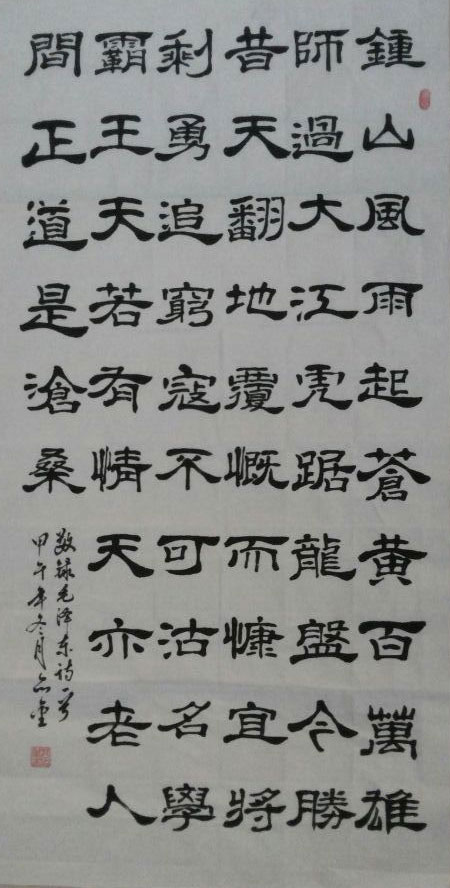 鍾山風雨起蒼黃百萬雄
師過大江虎踞龍盤今勝
昔天翻地覆慨而慷宜將
剩勇追窮寇不可沽名學
霸王天若有情天亦老人
間正道是滄桑
敬録毛泽东诗一首
甲午年冬月